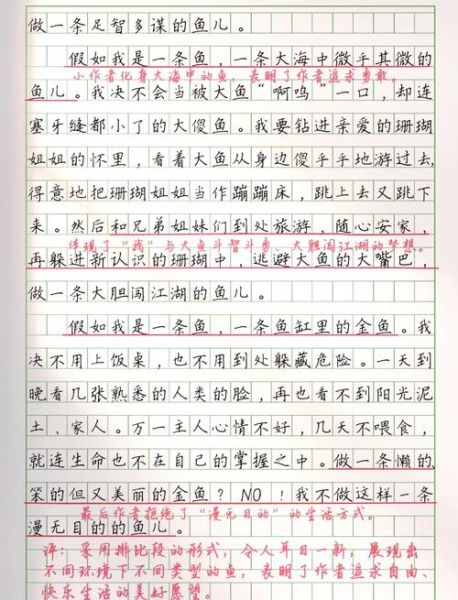 做一条足智多谋的鱼儿。
假如我是一条鱼，一条大海中微乎其微的
小作者化身大海中的鱼，表明了作者追求勇敢。
鱼儿。我决不会当被大鱼“啊呜”一口，却连
塞牙缝都小了的大傻鱼。我要钻进亲爱的珊瑚
姐姐的怀里，看着大鱼从身边傻乎乎地游过去，
得意地把珊瑚姐姐当作蹦蹦床，跳上去又跳下
来。然后和兄弟姐妹们到处旅游，随心安家，
体现了“我”与大鱼斗智斗勇、大胆闯江湖的梦想。
再躲进新认识的珊瑚中，逃避大鱼的大嘴巴，
做一条大胆闯江湖的鱼儿。
假如我是一条鱼，一条鱼缸里的金鱼。我
决不用上饭桌，也不用到处躲藏危险。一天到
晚看几张熟悉的人类的脸，再也看不到阳光泥
土、家人。万一主人心情不好，几天不喂食，
就连生命也不在自己的掌握之中。做一条懒的、
笨的但又美丽的金鱼？NO！我不做这样一条
最后作者拒绝了“漫无目的”的生活方式。
漫无目的的鱼儿。
评：采用排比段的形式，令人耳目一新，展现出
不同环境下不同类型的鱼，表明了作者追求自由、
快乐生活的美好愿望。